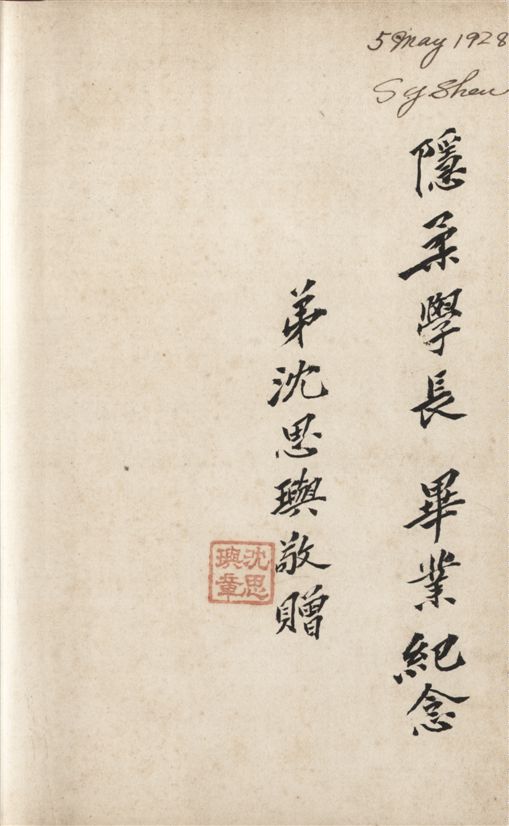 5 May 1928
S y Shen
隱柔學長 畢業紀念
弟沈思璵敬贈
沈思
璵章